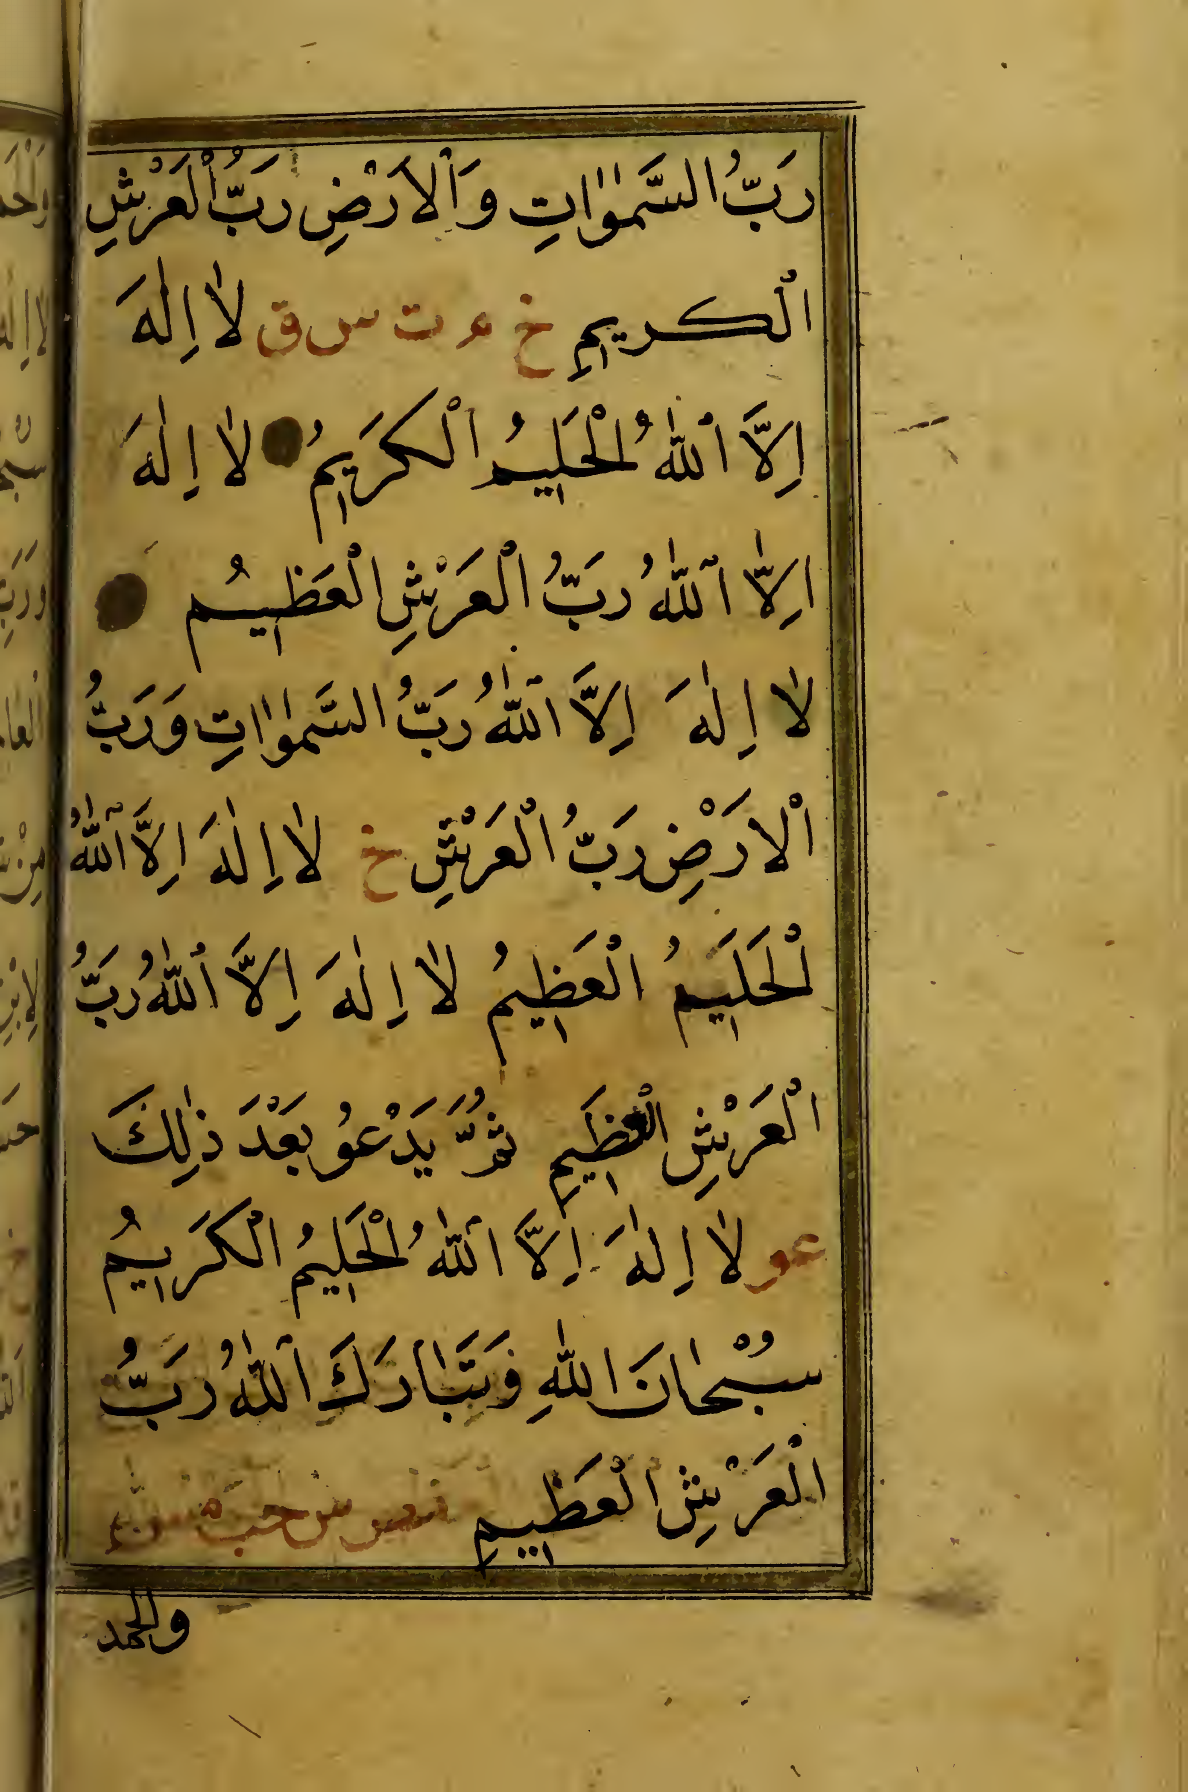 رَبُّ السَّمٰوَاتِ وَاْلاَرْضِ رَبُّ الْعَرْشِ
الْكَريمِ خ م ت س ق لاٰ اِلٰهَ
اِلاَّ اللّٰهُ الْحَلِيمُ الْكَرِيمُ لاٰ اِلٰهَ
اِلاّٰ اللّٰهُ رَبُّ الْعَرْشِ الْعَظِيمُ
لاٰ اِلٰهَ اِلاَّ اللّٰهُ رَبُّ السَّمٰوٰاتِ وَرَبُّ
اْلاَرْضِ رَبُّ الْعَرْشِ خ لاٰ اِلٰهَ اِلاَّ اللّٰهُ
الْحَلِيمُ الْعَظِيمُ لاٰ اِلٰهَ اِلاَّ اللّٰهُ رَبُّ
الْعَرْشِ الْعَظِيمِ ثُمَّ يَدْعُو بَعْدَ ذٰلِكَ
عو لاٰ اِلٰهَ اِلاَّ اللّٰهُ الْحَلِيمُ الْكَرِيمُ
سُبْحَانَ اللّٰهِ وَتَبَارَكَ اللّٰهُ رَبُّ
الْعَرْشِ الْعَظِيمِ س حب
والحمد